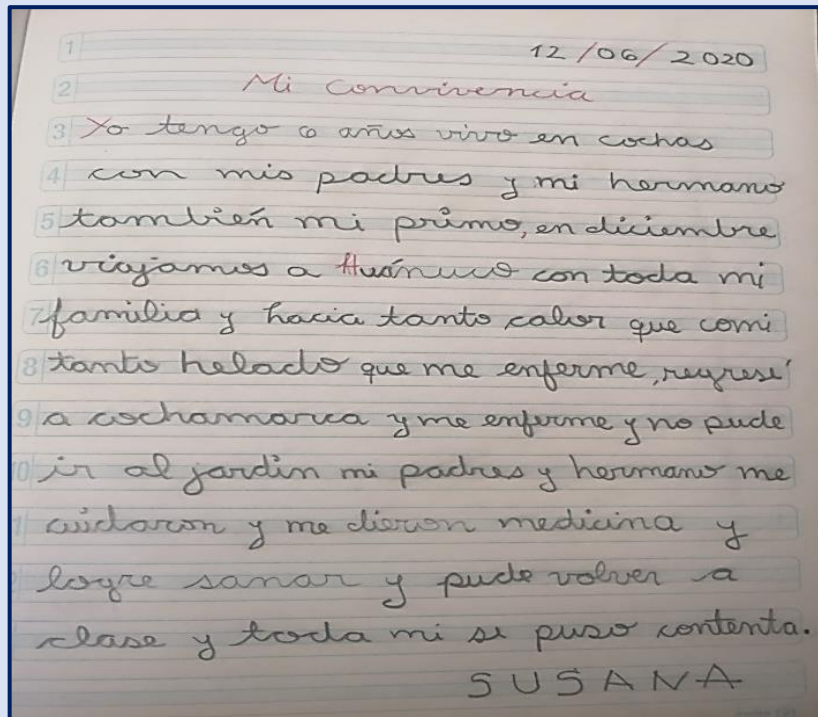 1 12/06/2020
2 Mi convivencia
3 Yo tengo 6 años vivo en cochas
4 con mis padres y mi hermano
5 también mi primo, en diciembre
6 viajamos a Huánuco con toda mi
7 familia y hacia tanto calor que comi
8 tanto helado que me enferme, regresé
9 a cochamarca y me enferme y no pude
0 ir al jardin mi padres y hermano me
1 cuidaron y me dieron medicina y
logre sanar y pude volver a
clase y toda mi se puso contenta.
SUSANA